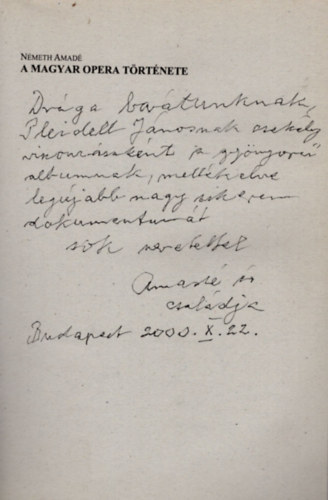 NÉMETH AMADÉ
A MAGYAR OPERA TÖRTÉNETE
Drága barátunknak,
Pleidell Jánosnak csekély
viszonzásként a gyönyörű
albumnak, mellékelve
legújabb nagy sikerem
dokumentumát
sok szeretettel
Amadé és
családja
Budapest 2000. X. 22.